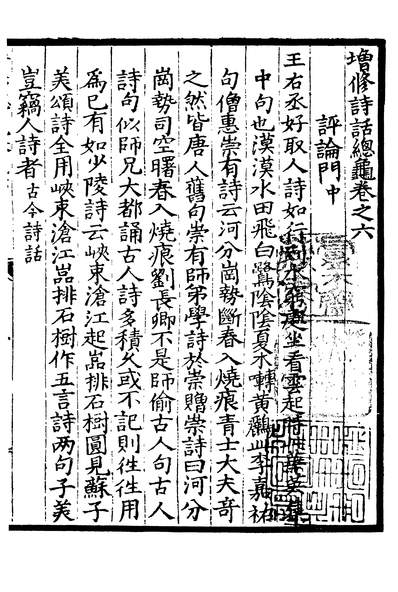 増修詩話總龜卷之六
評論門中
王右丞好取人詩如行到水窮處坐看雲起時此華英集
中句也漠漠水田飛白鷺陰陰夏木囀黄鸝此李嘉祐
句僧惠崇有詩云河分崗勢斷春入燒痕青士大夫奇
之然皆唐人舊句崇有師弟學詩於崇贈崇詩曰河分
崗勢司空曙春入燒痕劉長卿不是師偷古人句古人
詩句似師兄大都誦古人詩多積久或不記則徃徃用
爲已有如少陵詩云峽束滄江起嵓排石樹圓見蘇子
美頌詩全用峽束滄江嵓排石樹作五言詩两句子美
豈竊人詩者古今詩話